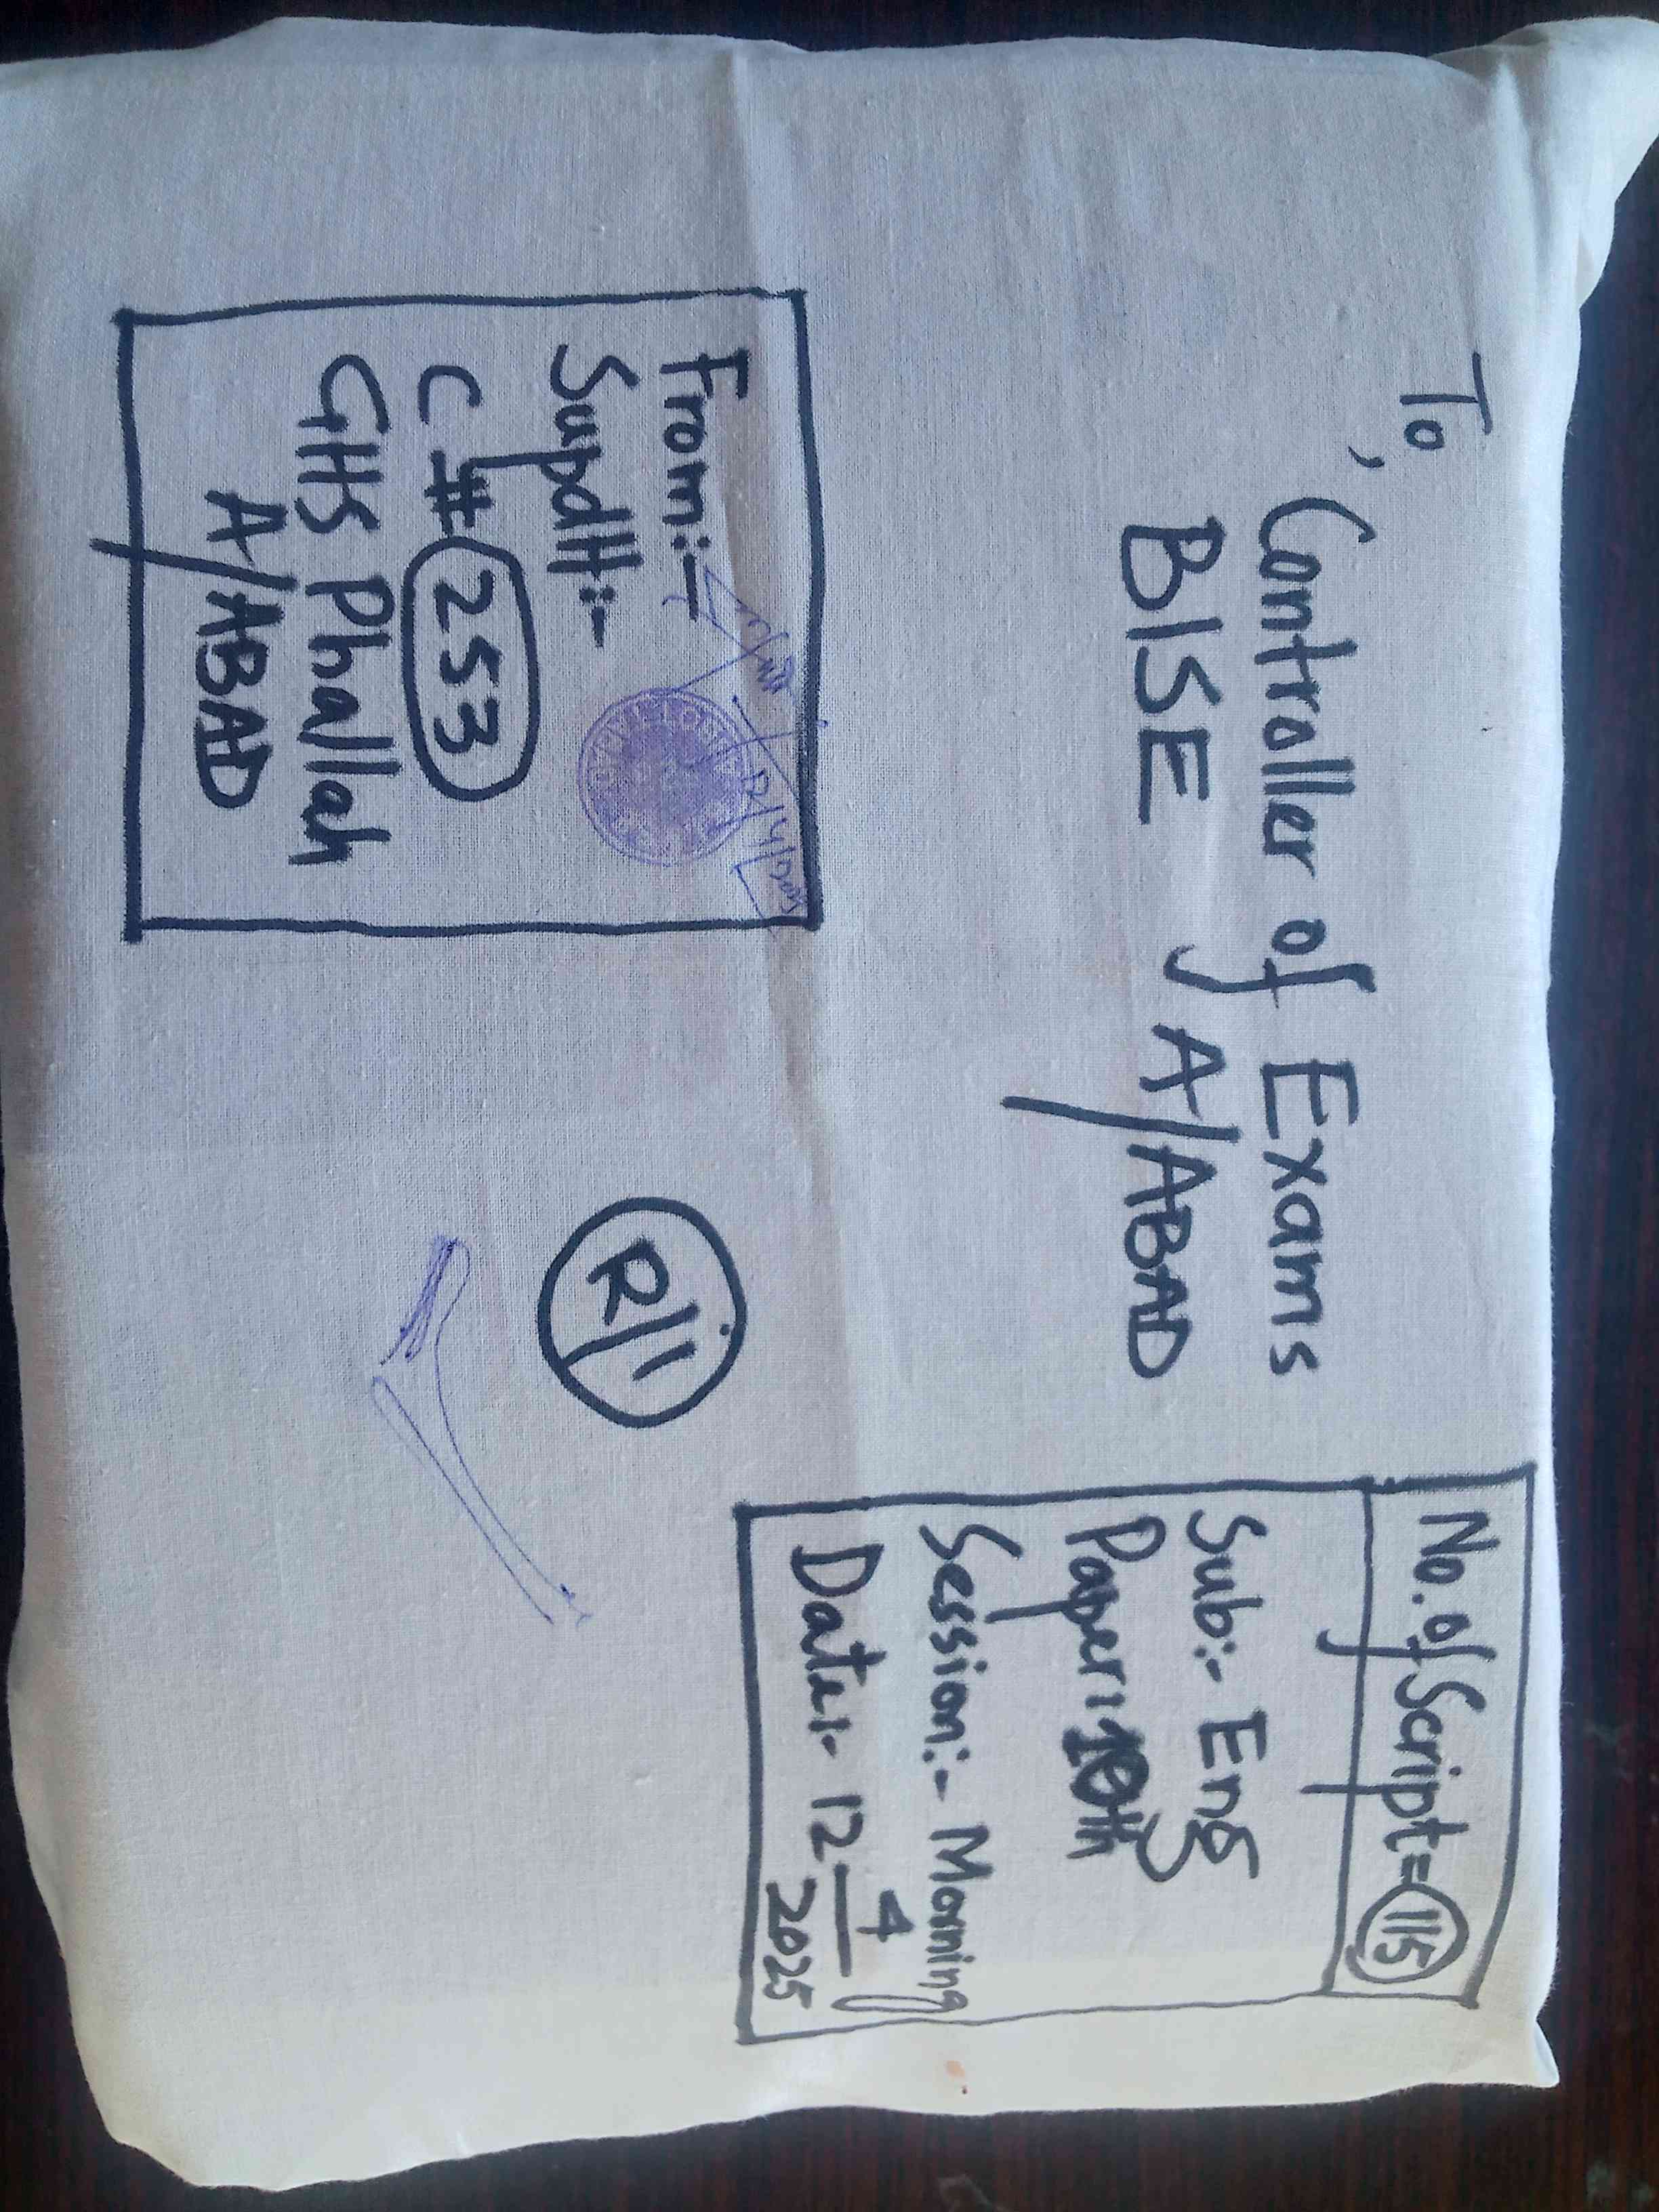 To,
Controller of Exams
BISE A/ABAD
No. of Script = 115
Sub:- Eng
Paper:- 10th
Session:- Morning
Date:- 12 4 2025
From:-
Supdtt:-
C # 253
GHS Phallah
A/ABAD
R/1